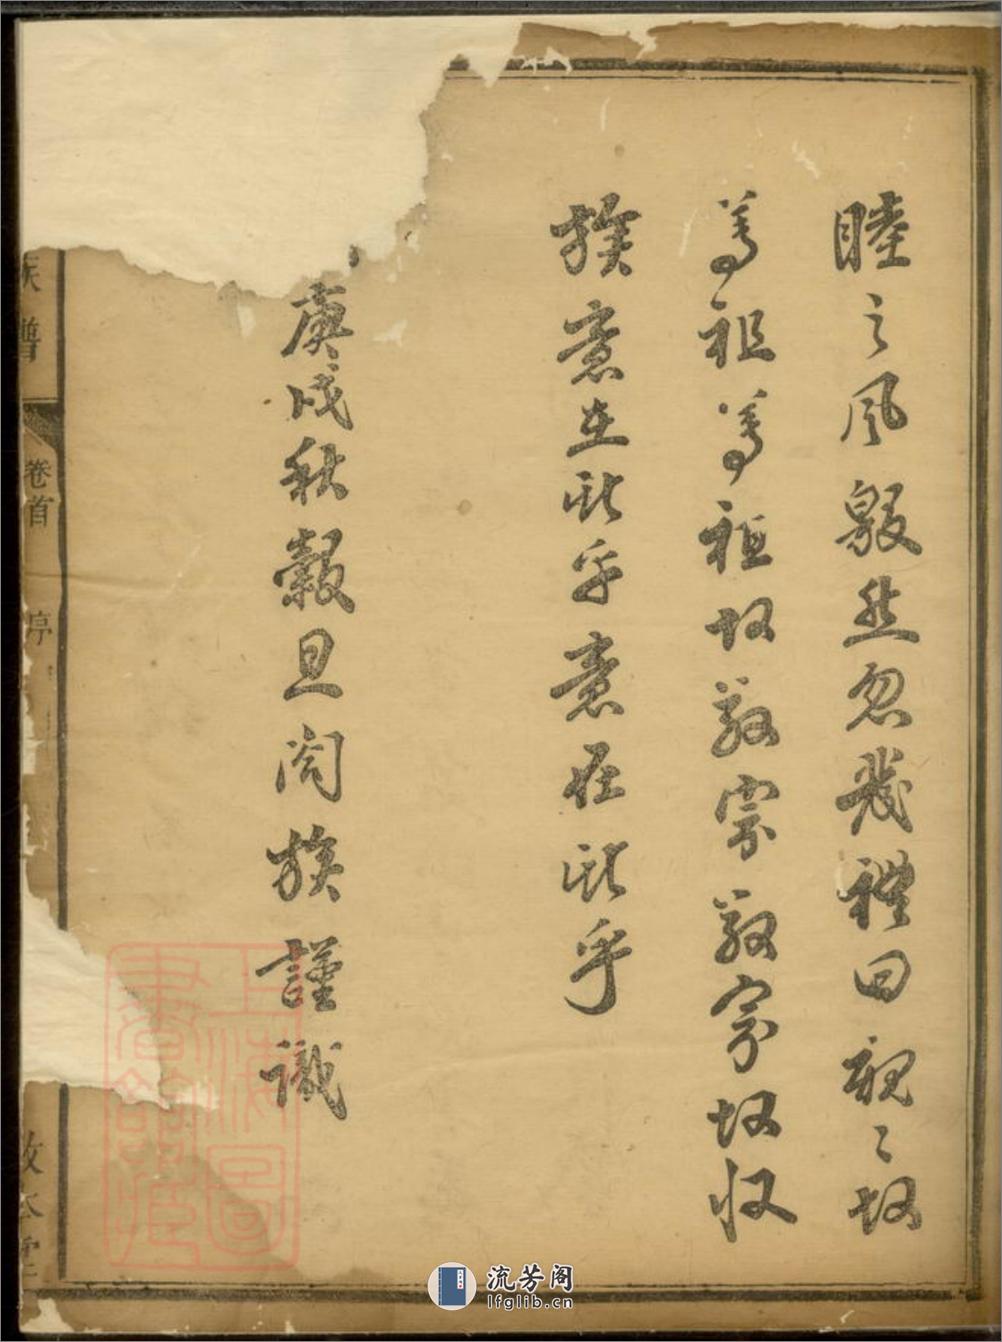 睦之風然忽幾禮曰親〻故
尊祖尊祖故敬宗敬宗故收
族意在斯乎意在斯乎
庚戌秋穀旦闔族謹識
族譜 卷首 序 本堂
上海圖書館藏
流芳阁
lfglib.cn